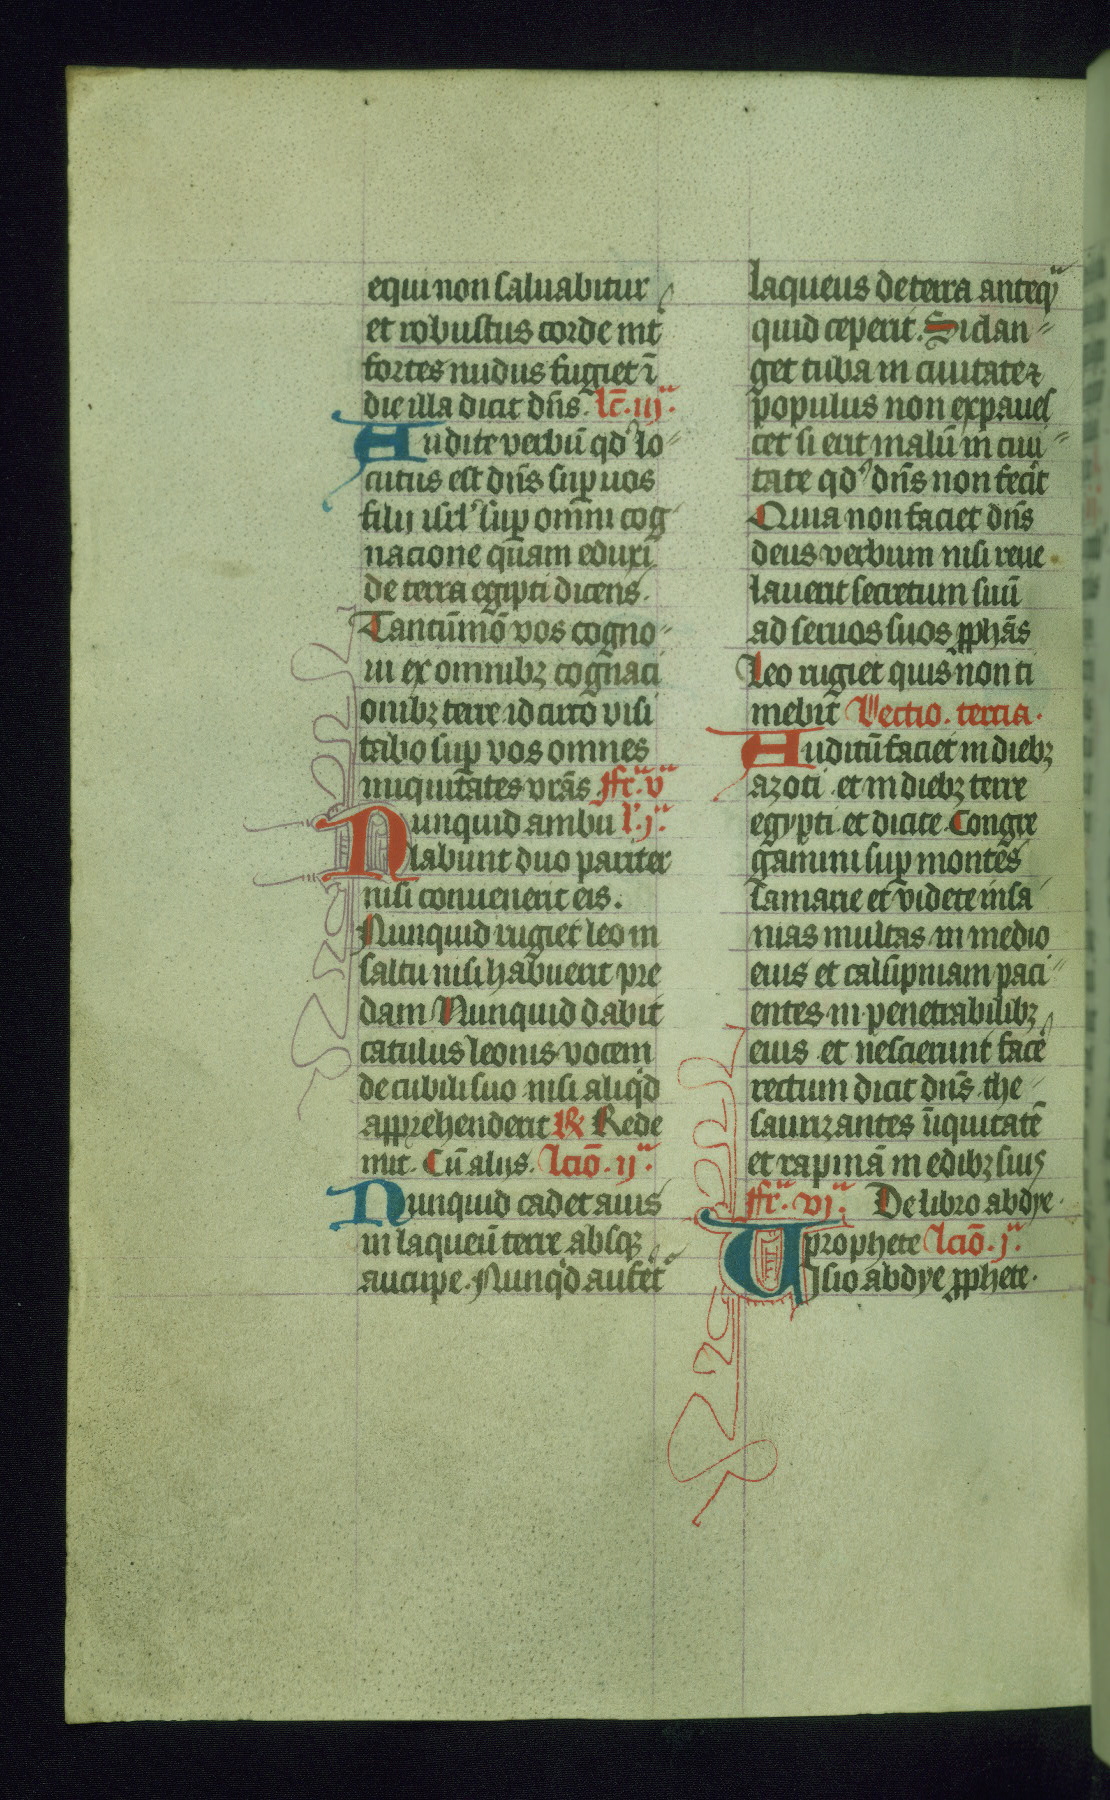 equi non saluabitur
et robustus corde int̄
fortes nudus fugiet ī
die illa dicit dn̄s. lc̄. iij.
Audite verbū qd' lo
cutus est dn̄s sup uos
filij isrl' sup omni cog
nacione quam eduxi
de terra egipti dicens.
Tantūmō vos cogno
ui ex omnibꝫ cognaci
onibꝫ terre idcirco visi
tabo sup vos omnes
iniquitates vrās. ffr. v
Nunquid ambu l'. j.
labunt duo pariter
nisi conuenerit eis.
Nunquid rugiet leo in
saltu nisi habuerit pre
dam Nunquid dabit
catulus leonis vocem
de cubili suo nisi aliqd
apprehenderit R Rede
mit. Cū alijs. lcīo. ij.
Nunquid cadet auis
in laqueū terre absqꝫ
aucupe. Nunqd aufet
laqueus de terra anteq
quid ceperit. Si clan
get tuba in ciuitate ⁊
populus non expaues
cet si erit malū in ciui
tate qd' dn̄s non fecit
Quia non faciet dn̄s
deus verbum nisi reue
lauerit secretum suū
ad seruos suos ꝓphās
Leo rugiet quis non ti
mebit Lectio. tercia.
Auditū faciet in diebꝫ
azoti et in diebꝫ terre
egypti et dicite Congre
gamini sup montes
samarie et videte insa
nias multas in medio
eius et calūpniam paci
entes in penetrabilibꝫ
eius et nescierunt face
rectum dicit dn̄s the
saurizantes īiquitatē
et rapinā in edibꝫ suis
ffr. vj. De libro abdye
prophete lcīo. j.
Uisio abdye ꝓphete.